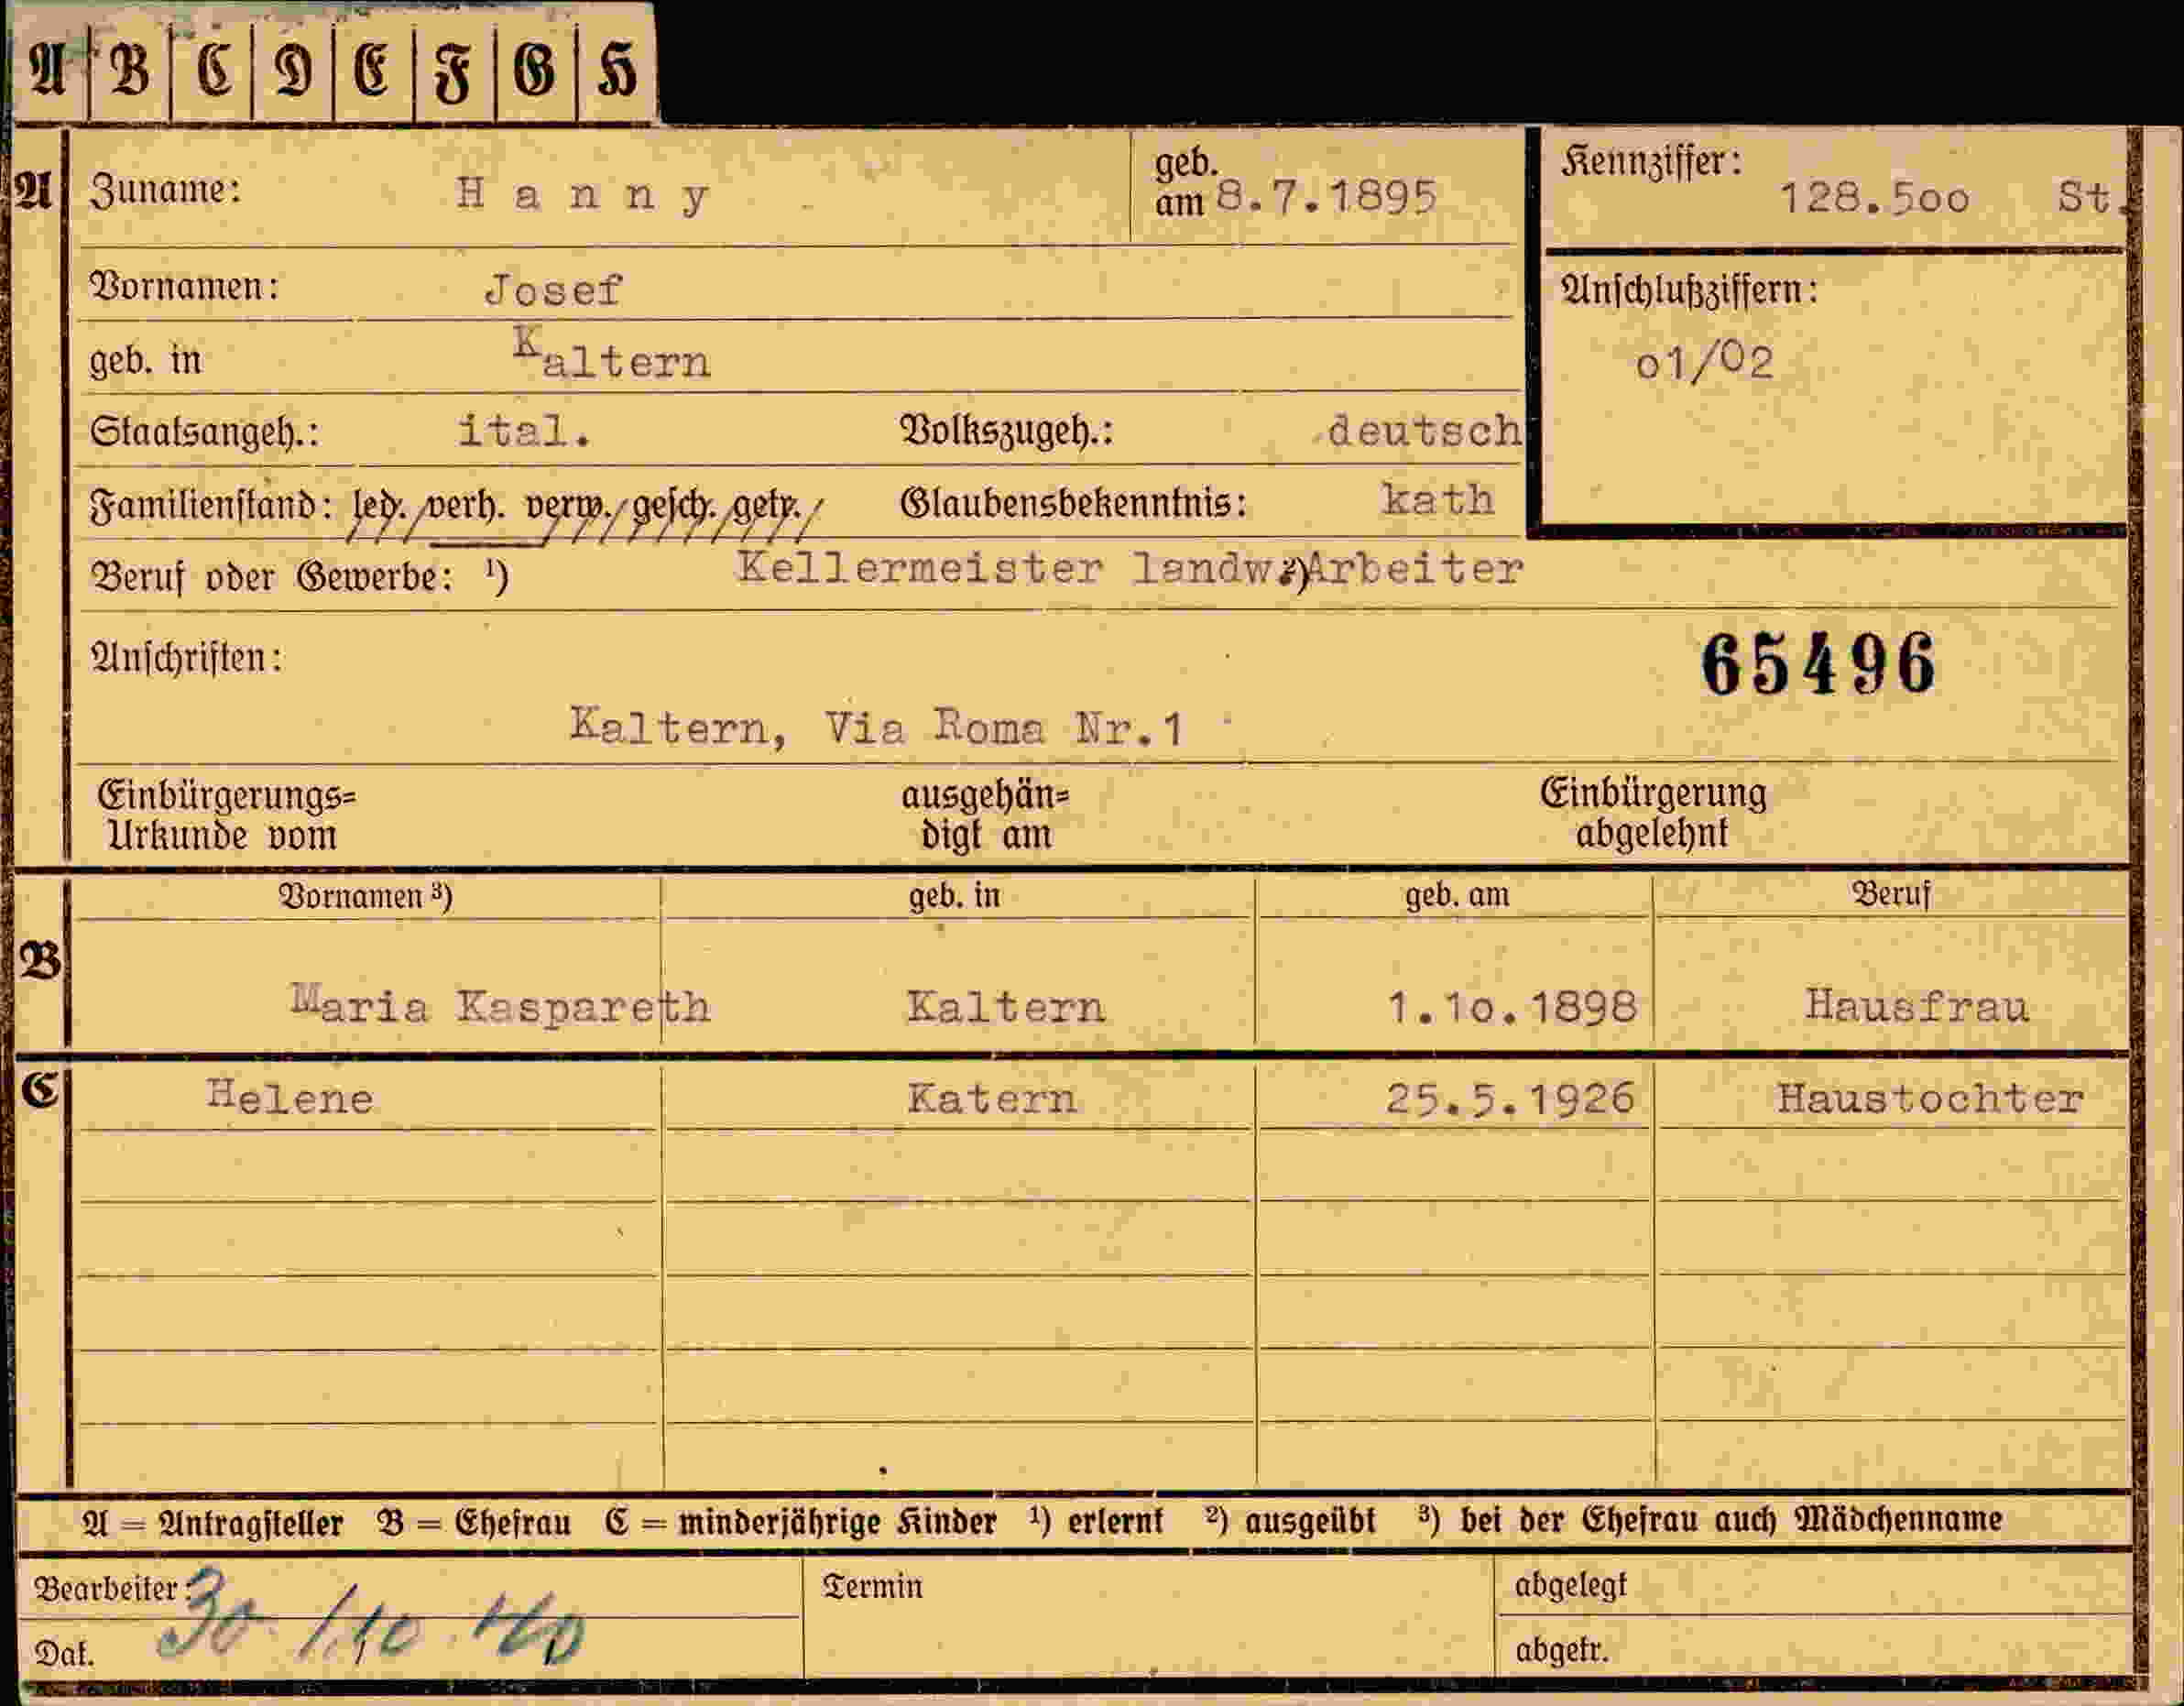 A B C D E F G H
A Zuname: Hanny geb. am 8.7.1895 Kennziffer: 128.5oo St.
Vornamen: Josef Anschlußziffern:
geb. in Kaltern o1/O2
Staatsangeh.: ital. Volkszugeh.: deutsch
Familienstand: led. verh. verw. gesch. getr. Glaubensbekenntnis: kath
Beruf oder Gewerbe: ¹) Kellermeister landw. ²) Arbeiter
Anschriften: 65496
Kaltern, Via Roma Nr.1
Einbürgerungs= ausgehän= Einbürgerung
Urkunde vom digt am abgelehnt
Vornamen ³) geb. in geb. am Beruf
B Maria Kaspareth Kaltern 1.1o.1898 Hausfrau
C Helene Katern 25.5.1926 Haustochter
A = Antragsteller B = Ehefrau C = minderjährige Kinder ¹) erlernt ²) ausgeübt ³) bei der Ehefrau auch Mädchenname
Bearbeiter: Termin abgelegt
Dat. 30. 10 40 abgetr.